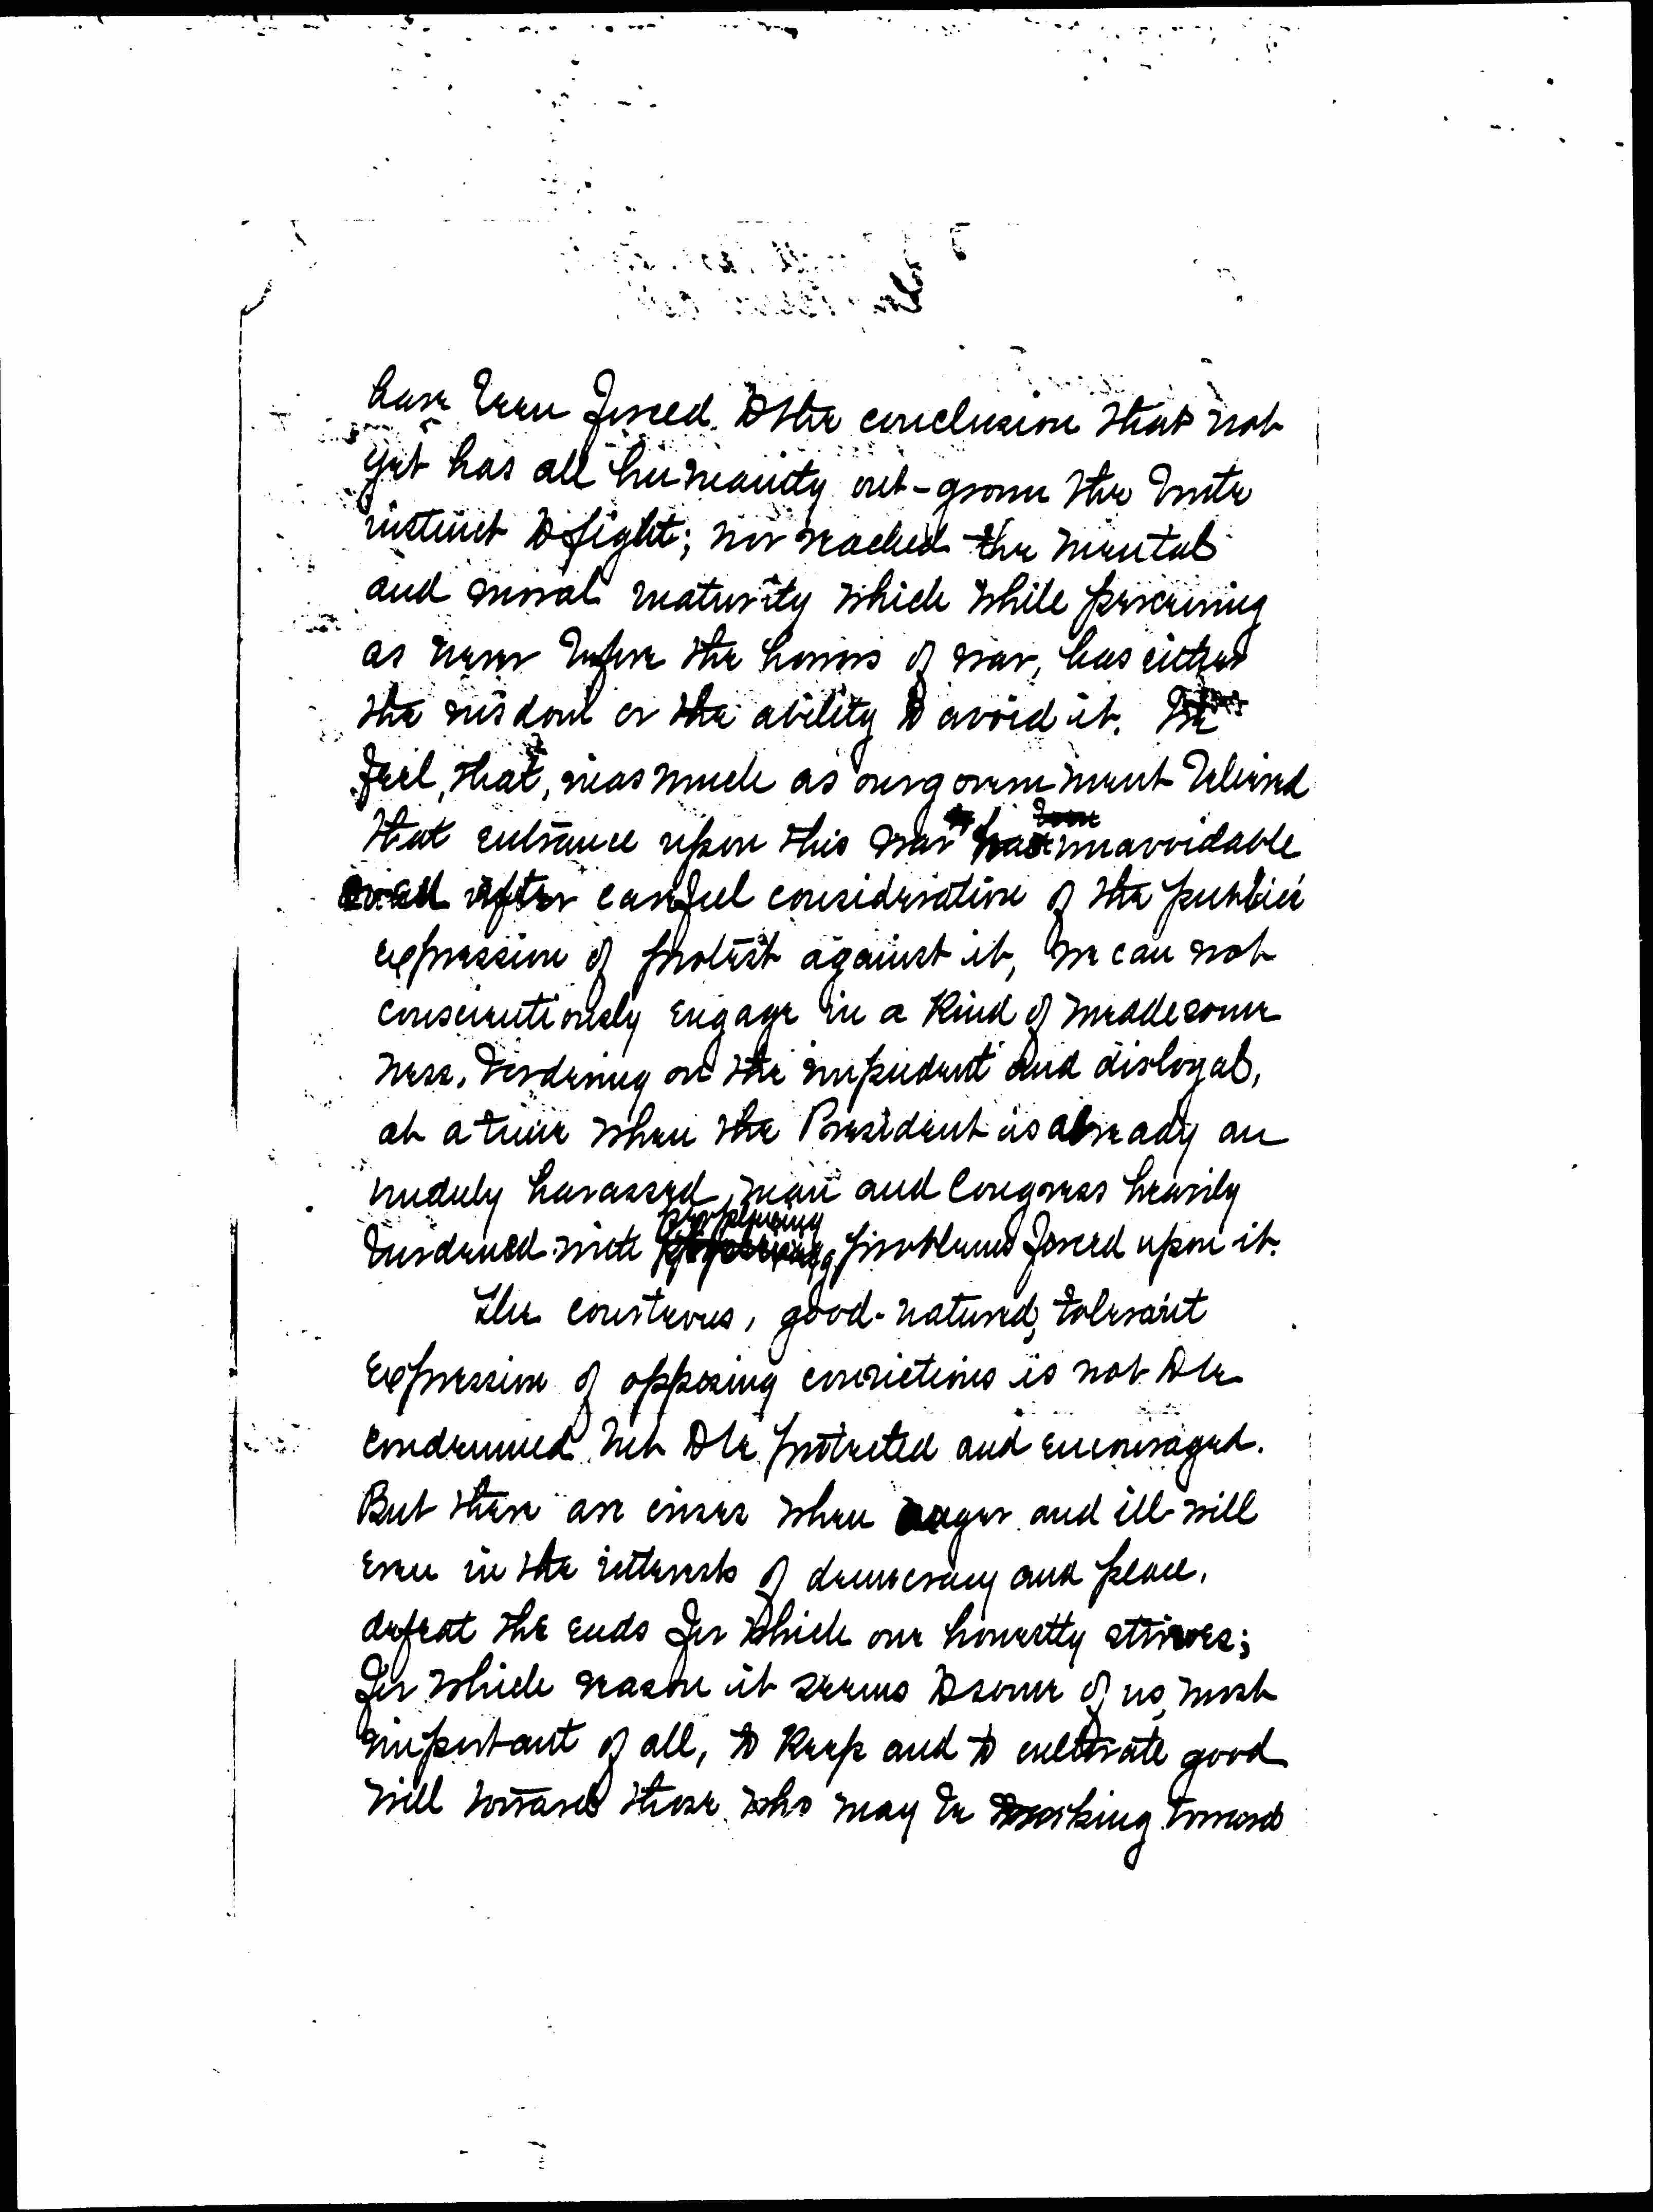 have been forced to the conclusion that not
yet has all humanity out-grown the brute
instinct to fight; nor reached the mental
and moral maturity which while perceiving
as never before the horrors of war, has either
the wisdom or the ability to avoid it. We
feel, that, inasmuch as our government believed
that entrance upon this war was unavoidable
even after careful consideration of the public
expression of protest against it, we can not
conscientiously engage in a kind of meddlesome
ness, bordering on the impudent and disloyal,
at a time when the President is already an
unduly harassed man and Congress heavily
burdened with perplexing problems forced upon it.
The courteous, good-natured, tolerant
expression of opposing convictions is not to be
condemned but to be protected and encouraged.
But there are crises when anger and ill-will
even in the interests of democracy and peace,
defeat the ends for which one honestly strives;
for which reason it seems to some of us, most
important of all, to keep and to cultivate good
will towards those who may be working towards